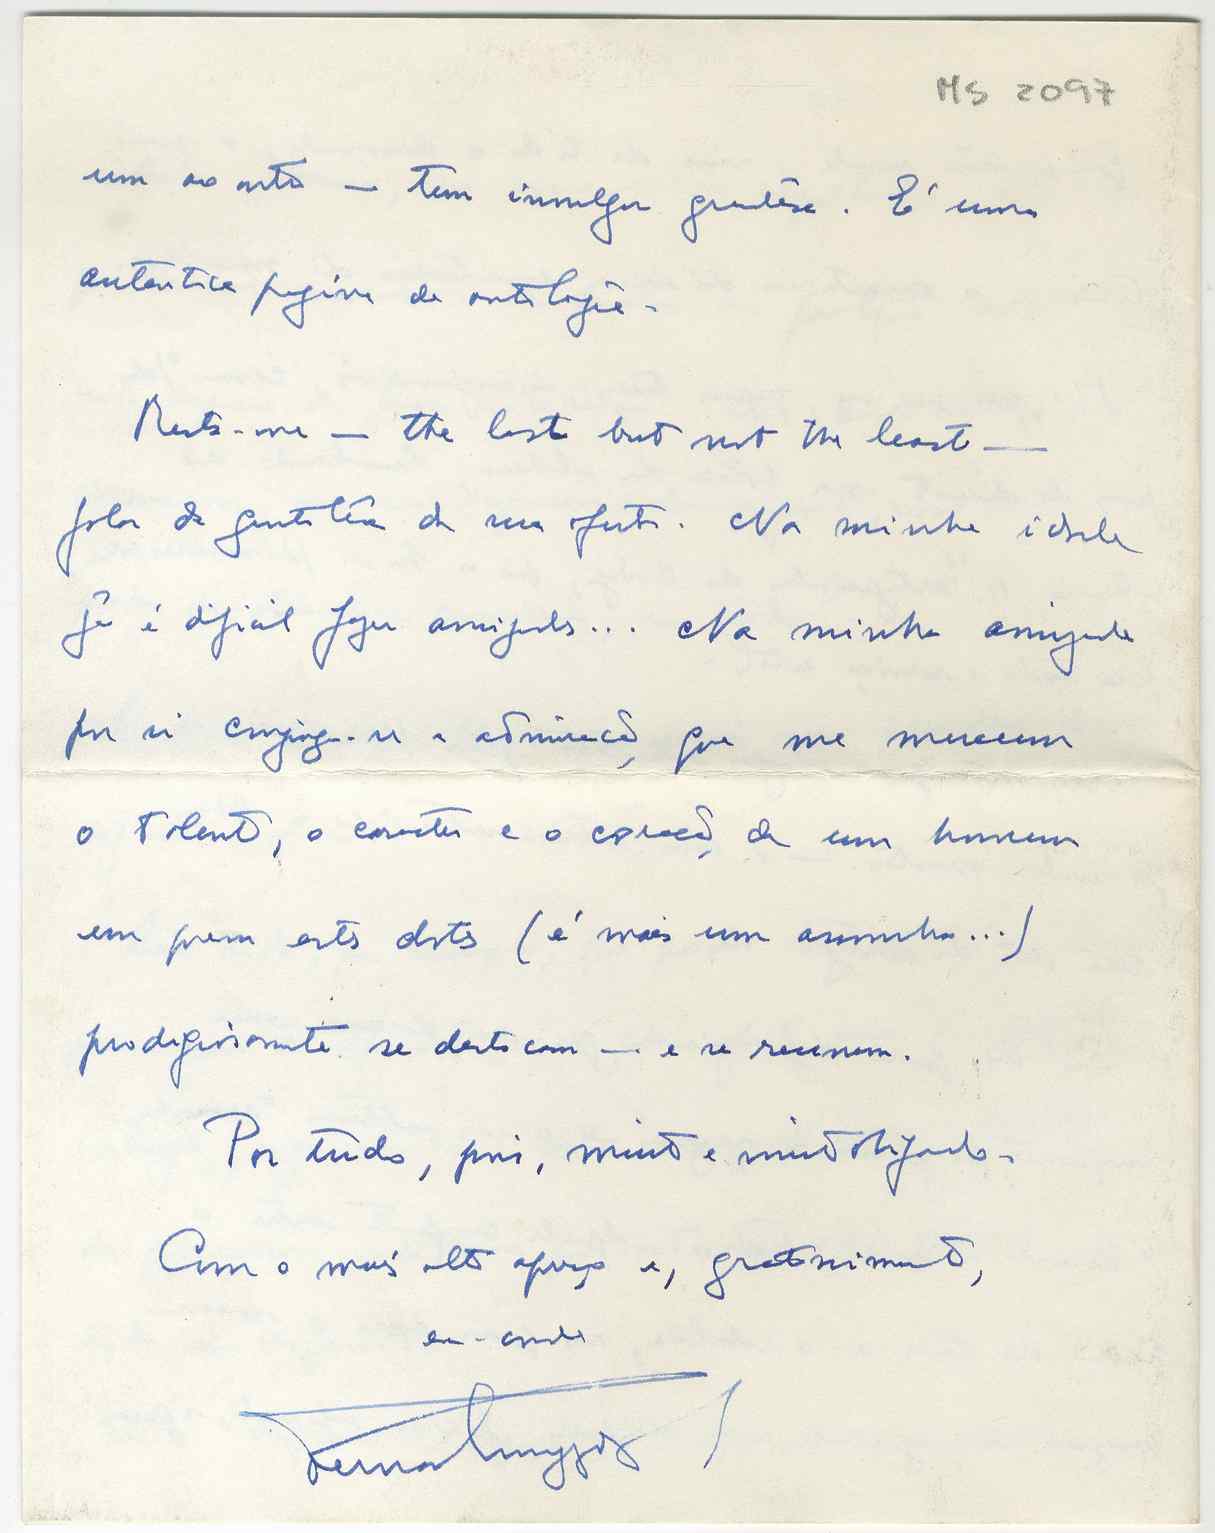 MS 2097
um ao outro — tem invulgar grandêsa. É uma
autentica página de antologia.
Resta-me — the last but not the least —
falar da gentilêsa da sua oferta. Na minha idade
já é dificil fazer amigos... Na minha amizade
por si conjuga-se a admiração que me merecem
o talento, o caracter e o coração de um homem
em quem estes dotes (é mais um assombro...)
prodigiosamente se destacam — e se reunem.
Por tudo, pois, muito e muito obrigado.
Com o mais alto apreço e, gratissimamente,